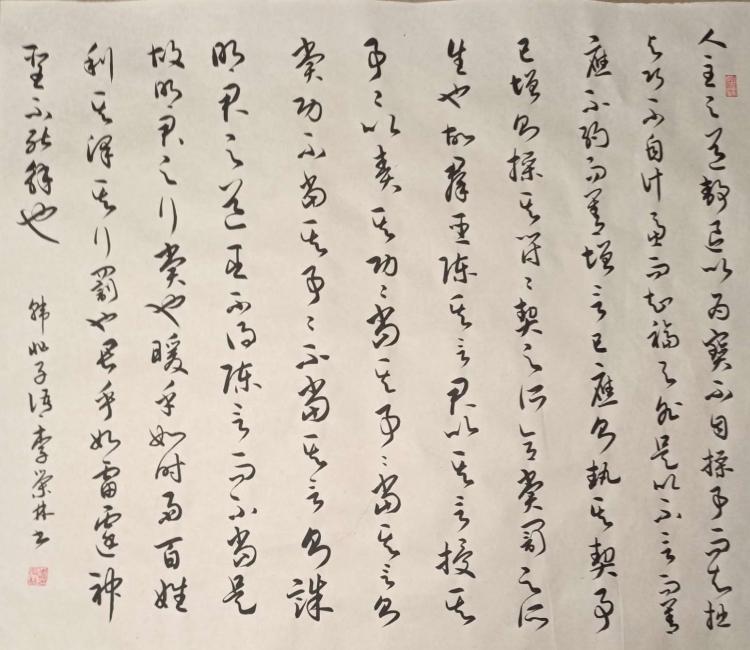 人主之道靜退以為寶不自操事而知拙
与巧不自計慮而知福与咎是以不言而善
應不約而善增言已應則執其契事
已增則操其符〻契之所合賞罰之所
生也故群臣陳其言君以其言授其
事〻以責其功〻當其事〻當其言則
賞功不當其事〻不當其言則誅
明君之道臣不得陳言而不當是
故明君之行賞也暖乎如時雨百姓
利其澤其行罰也畏乎如雷霆神
聖不能解也
韓非子語 李榮林书